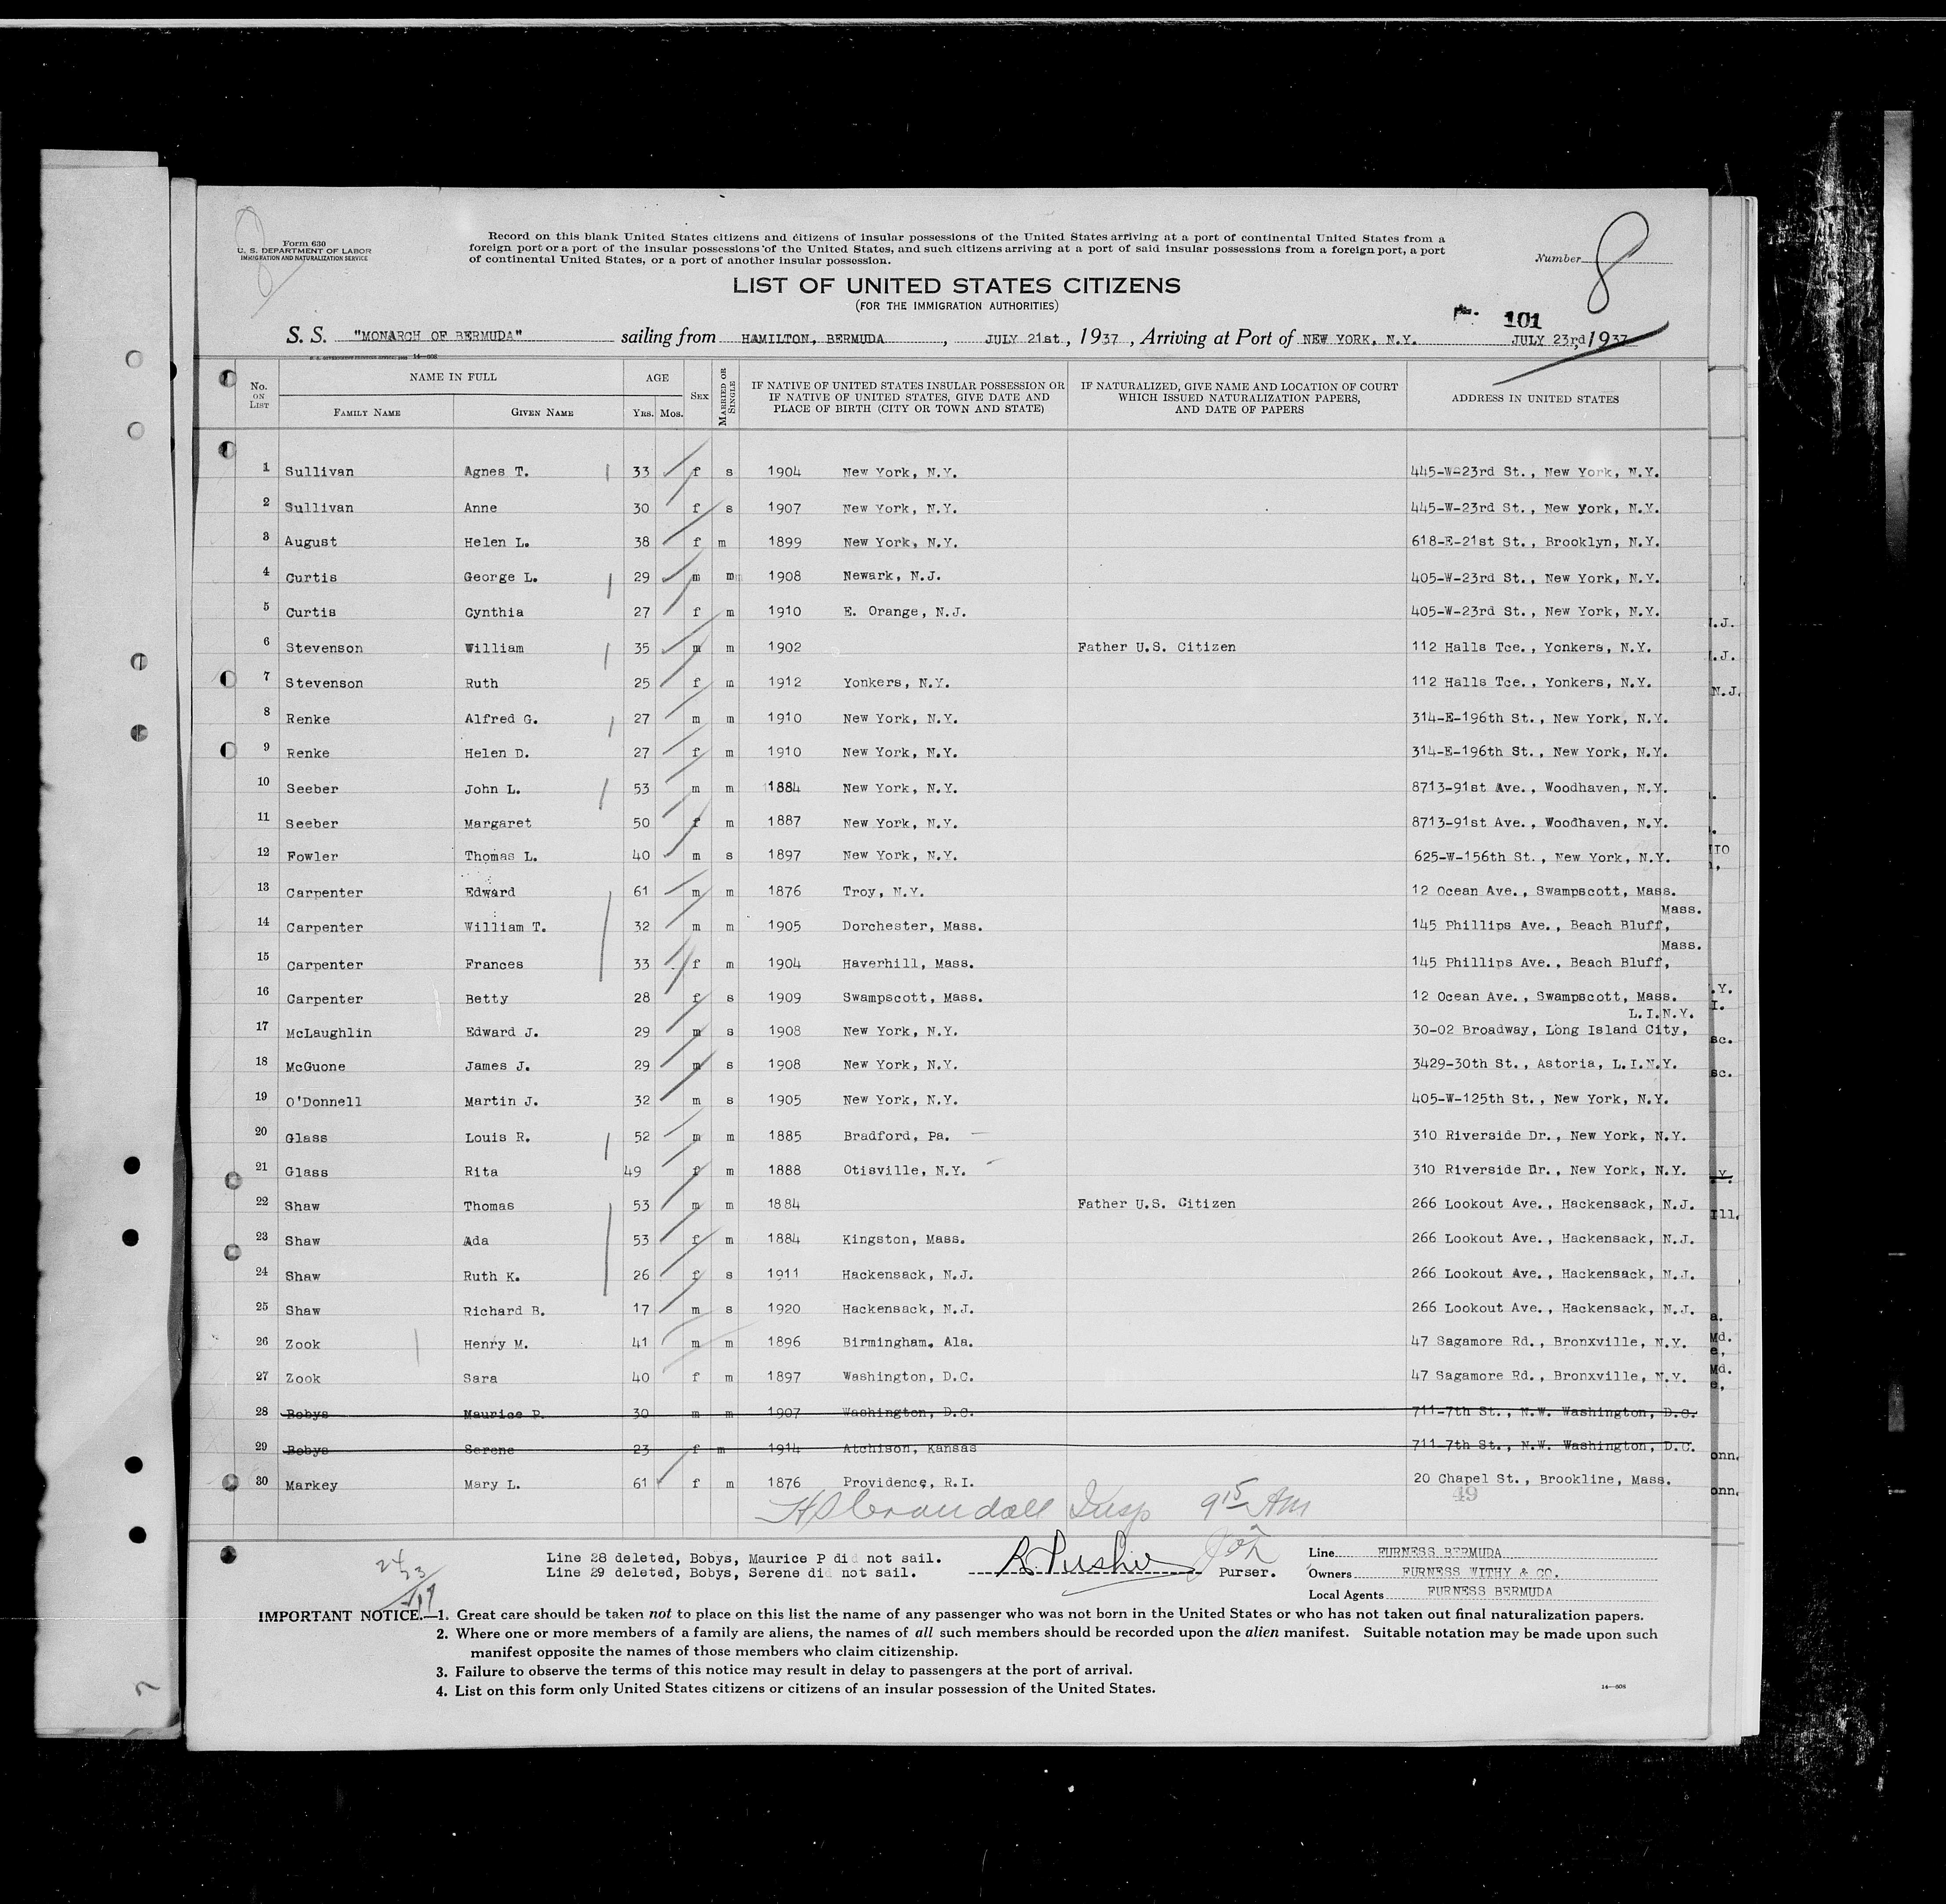 Form 630
U. S. DEPARTMENT OF LABOR
IMMIGRATION AND NATURALIZATION SERVICE
Record on this blank United States citizens and citizens of insular possessions of the United States arriving at a port of continental United States from a
foreign port or a port of the insular possessions of the United States, and such citizens arriving at a port of said insular possessions from a foreign port, a port
of continental United States, or a port of another insular possession.
Number 8
LIST OF UNITED STATES CITIZENS
(FOR THE IMMIGRATION AUTHORITIES)
101
S. S. "MONARCH OF BERMUDA" sailing from HAMILTON, BERMUDA, JULY 21st, 1937, Arriving at Port of NEW YORK, N.Y. JULY 23rd, 1937
14—608
No. ON LIST NAME IN FULL AGE SEX MARRIED OR SINGLE IF NATIVE OF UNITED STATES INSULAR POSSESSION OR IF NATIVE OF UNITED STATES, GIVE DATE AND PLACE OF BIRTH (CITY OR TOWN AND STATE) IF NATURALIZED, GIVE NAME AND LOCATION OF COURT WHICH ISSUED NATURALIZATION PAPERS, AND DATE OF PAPERS ADDRESS IN UNITED STATES
FAMILY NAME GIVEN NAME Yrs. Mos.
1 Sullivan Agnes T. 33 f s 1904 New York, N.Y. 445-W-23rd St., New York, N.Y.
2 Sullivan Anne 30 f s 1907 New York, N.Y. 445-W-23rd St., New York, N.Y.
3 August Helen L. 38 f m 1899 New York, N.Y. 618-E-21st St., Brooklyn, N.Y.
4 Curtis George L. 29 m m 1908 Newark, N.J. 405-W-23rd St., New York, N.Y.
5 Curtis Cynthia 27 f m 1910 E. Orange, N.J. 405-W-23rd St., New York, N.Y.
6 Stevenson William 35 m m 1902 Father U.S. Citizen 112 Halls Tce., Yonkers, N.Y.
7 Stevenson Ruth 25 f m 1912 Yonkers, N.Y. 112 Halls Tce., Yonkers, N.Y.
8 Renke Alfred G. 27 m m 1910 New York, N.Y. 314-E-196th St., New York, N.Y.
9 Renke Helen D. 27 f m 1910 New York, N.Y. 314-E-196th St., New York, N.Y.
10 Seeber John L. 53 m m 1884 New York, N.Y. 8713-91st Ave., Woodhaven, N.Y.
11 Seeber Margaret 50 f m 1887 New York, N.Y. 8713-91st Ave., Woodhaven, N.Y.
12 Fowler Thomas L. 40 m s 1897 New York, N.Y. 625-W-156th St., New York, N.Y.
13 Carpenter Edward 61 m m 1876 Troy, N.Y. 12 Ocean Ave., Swampscott, Mass.
14 Carpenter William T. 32 m m 1905 Dorchester, Mass. 145 Phillips Ave., Beach Bluff, Mass.
15 Carpenter Frances 33 f m 1904 Haverhill, Mass. 145 Phillips Ave., Beach Bluff, Mass.
16 Carpenter Betty 28 f s 1909 Swampscott, Mass. 12 Ocean Ave., Swampscott, Mass.
17 McLaughlin Edward J. 29 m s 1908 New York, N.Y. 30-02 Broadway, Long Island City, L.I.N.Y.
18 McGuone James J. 29 m s 1908 New York, N.Y. 3429-30th St., Astoria, L.I.N.Y.
19 O'Donnell Martin J. 32 m s 1905 New York, N.Y. 405-W-125th St., New York, N.Y.
20 Glass Louis R. 52 m m 1885 Bradford, Pa. 310 Riverside Dr., New York, N.Y.
21 Glass Rita 49 f m 1888 Otisville, N.Y. 310 Riverside Dr., New York, N.Y.
22 Shaw Thomas 53 m m 1884 Father U.S. Citizen 266 Lookout Ave., Hackensack, N.J.
23 Shaw Ada 53 f m 1884 Kingston, Mass. 266 Lookout Ave., Hackensack, N.J.
24 Shaw Ruth K. 26 f s 1911 Hackensack, N.J. 266 Lookout Ave., Hackensack, N.J.
25 Shaw Richard B. 17 m s 1920 Hackensack, N.J. 266 Lookout Ave., Hackensack, N.J.
26 Zook Henry M. 41 m m 1896 Birmingham, Ala. 47 Sagamore Rd., Bronxville, N.Y.
27 Zook Sara 40 f m 1897 Washington, D.C. 47 Sagamore Rd., Bronxville, N.Y.
28 Bobys Maurice P. 30 m m 1907 Washington, D.C. 711-7th St., N.W. Washington, D.C.
29 Bobys Serene 23 f m 1914 Atchison, Kansas 711-7th St., N.W. Washington, D.C.
30 Markey Mary L. 61 f m 1876 Providence, R.I. 20 Chapel St., Brookline, Mass.
49
Crandall Insp 9 15 AM
Line 28 deleted, Bobys, Maurice P did not sail.
Line 29 deleted, Bobys, Serene did not sail.
Purser.
Line FURNESS BERMUDA
Owners FURNESS WITHY & CO.
Local Agents FURNESS BERMUDA
IMPORTANT NOTICE.—1. Great care should be taken not to place on this list the name of any passenger who was not born in the United States or who has not taken out final naturalization papers.
2. Where one or more members of a family are aliens, the names of all such members should be recorded upon the alien manifest. Suitable notation may be made upon such
manifest opposite the names of those members who claim citizenship.
3. Failure to observe the terms of this notice may result in delay to passengers at the port of arrival.
4. List on this form only United States citizens or citizens of an insular possession of the United States.
14—608